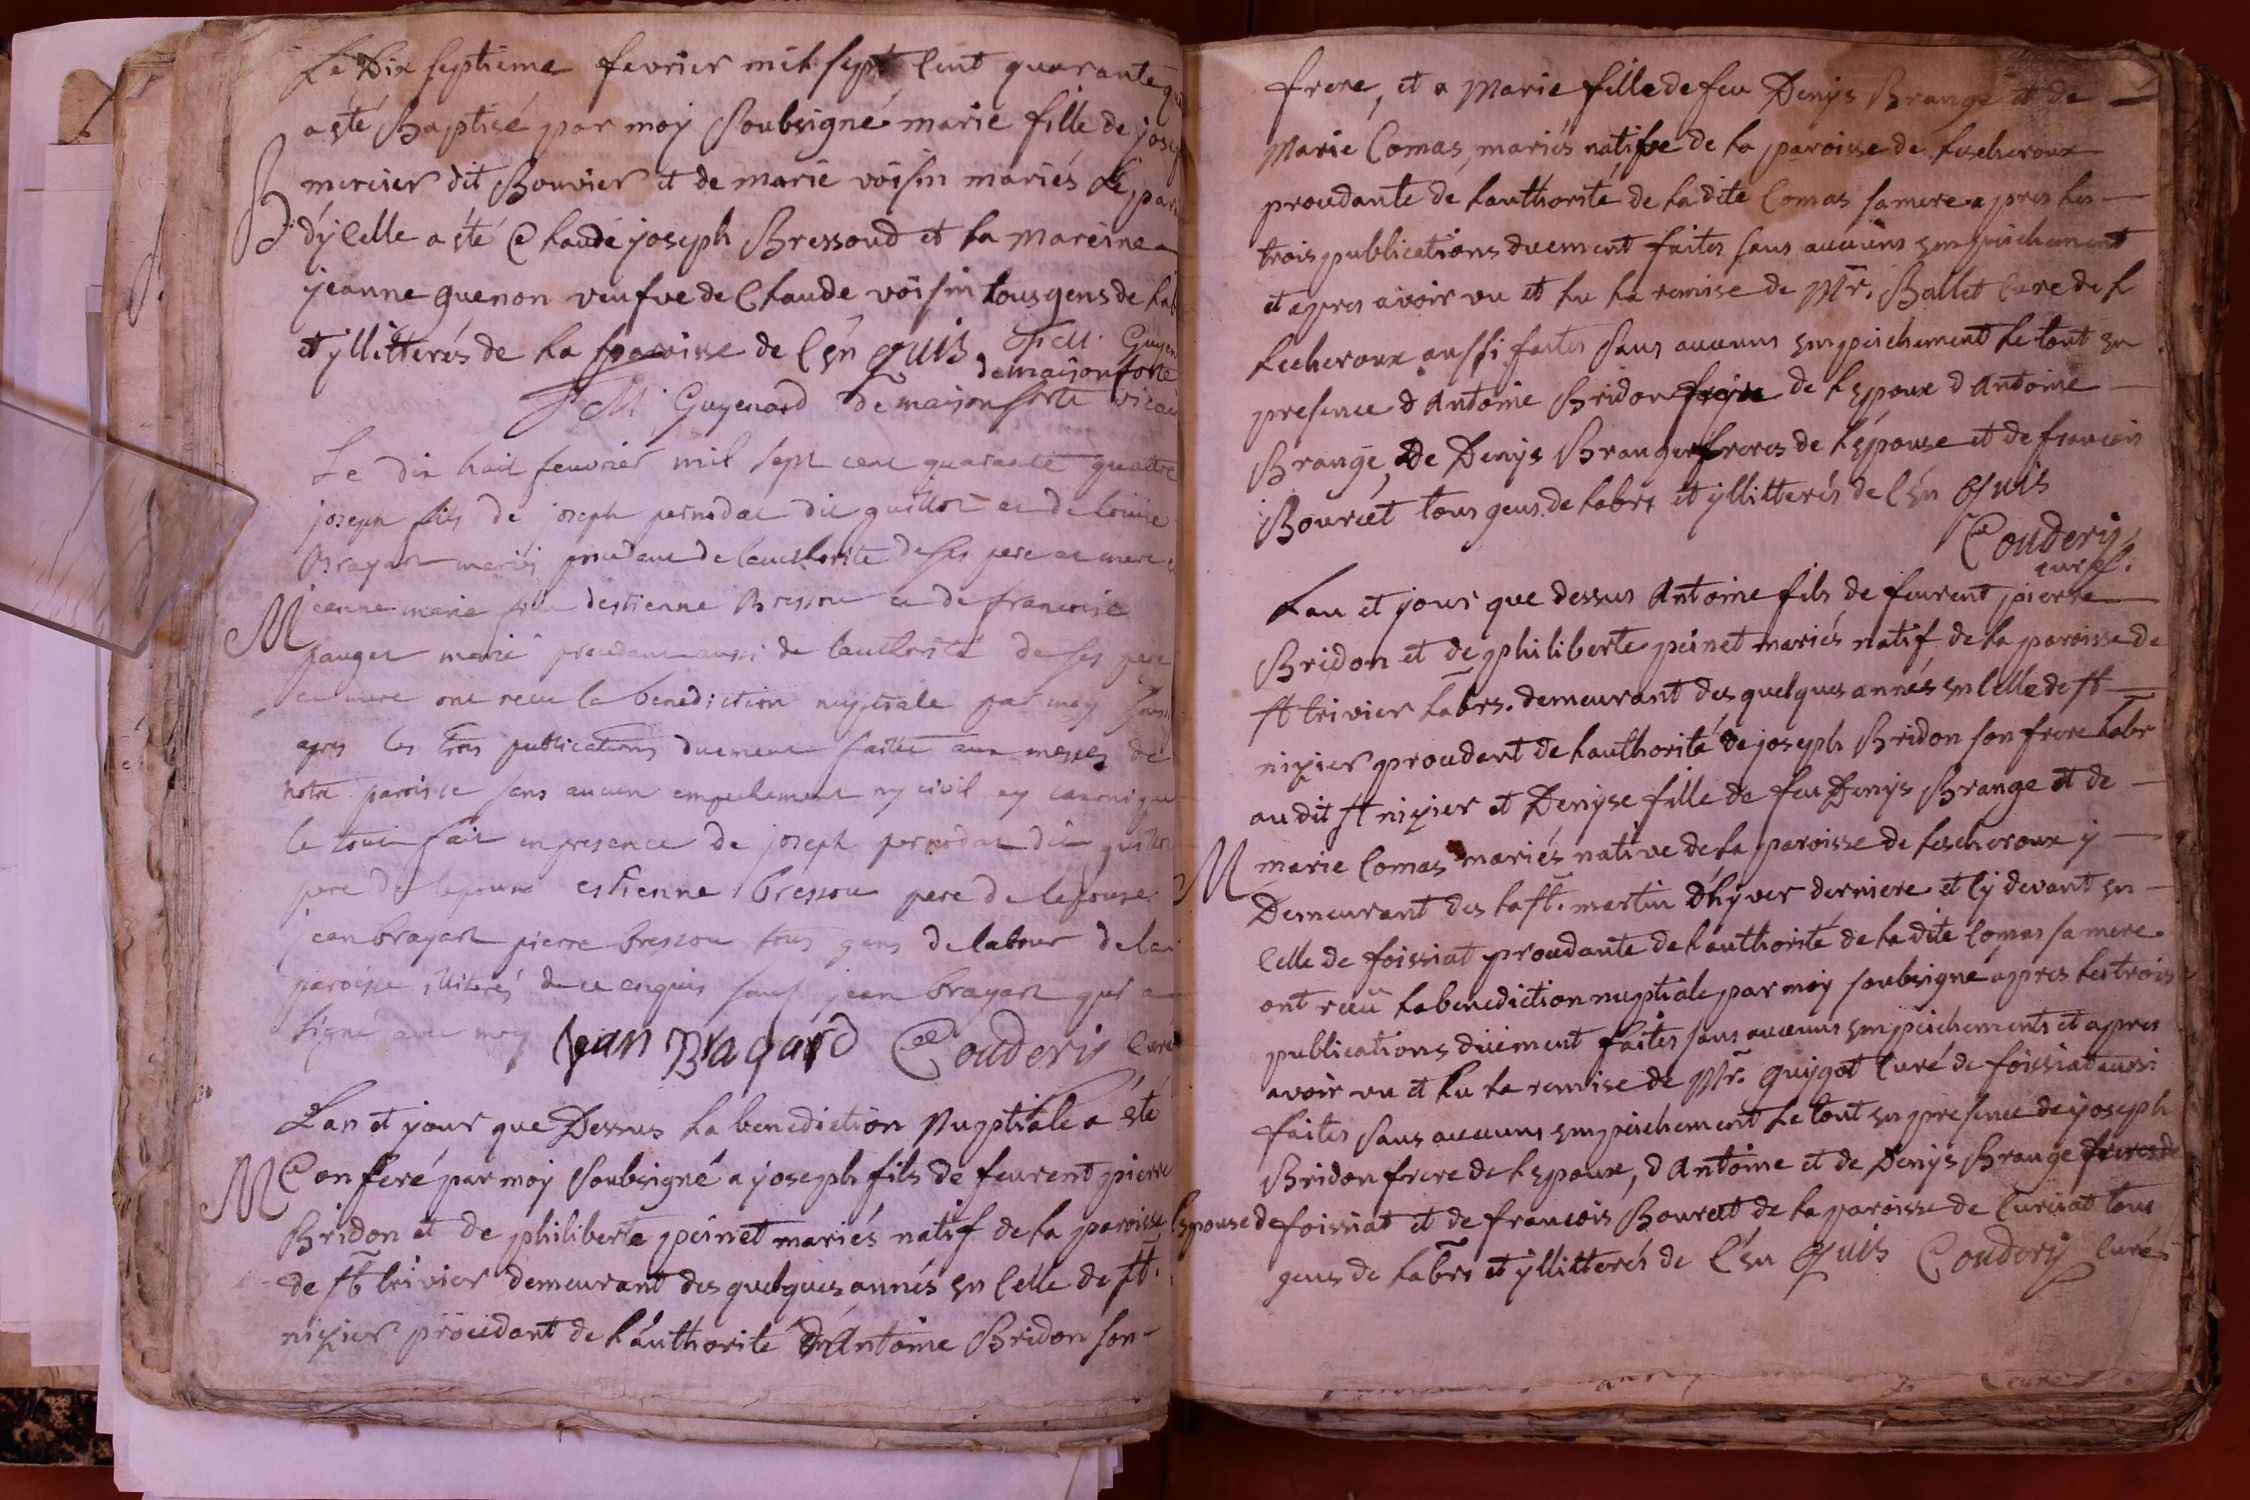 Le Dix septieme fevrier mil sept Cent quarante
a ste Baptisé par moy Soubsigné marie fille de
B mercier dit Bouvier et de marie voisin mariés Le
d'yCelle a sté Claude joseph Bressoud et La Mareine
jeanne guenon veufve de Claude voisin tous gens de
et yllitterés de La paroisse de Cén quis
de maisonforte
M. Guyenard De maisonforte
Le dix huit feuvrier mil sept cent quarante quattre
joseph fils de joseph pernodat dit guillot et de Louise
Brayart mariés procedant de lauthorité de ses pere et mere
M jeanne marie fille destienne Bressou et de francoise
pauget marié procedant aussi de lauthorité de ses pere
et mere ont receu la benediction nuptiale par moy
apres les trois publications duement faites aux messes de
notre paroisse sans aucun empechement ny civil ny
le tout fait en presence de joseph pernodat dit
pere de lepoux estienne bressou pere de lepouse
jean brayart pierre bressou tous gens de labour de la
paroisse illiterés de cenquis sauf jean brayart qui a
signé avec moy Jean Bragard Couderij Curé
Lan et jour que Dessus La benediction Nuptiale a sté
M Conferé par moy Soubsigné a joseph fils de feurent pierre
Bridon et de philiberte peinet mariés natif de La paroisse
de st trivier demeurant des quelques annés en Celle de st.
nizier procedant de Láuthorité D'Antoine Bridon son
frere, et a Marie fille de feu Denÿs Brange et de
Marie Comas, mariés natifve de La paroisse de Lescheroux
procedante de Lauthorité de La dite Comas sa mere apres Les
trois publications duement faites sans aucuns empeichement
et apres avoir vu et Lu La remise de Mr. Ballet Curé de L
Lecheroux aussi faites Sans aucuns empeichement Le tout en
presence d'Antoine Bridon frere de Lepoux d'Antoine
Brange, De Denys Brange freres de Lépouse et de francois
Bourcet tous gens de Labrs et yllitterés de Cén quis
Couderij
curé.
Lan et jour que dessus Antoine fils de feurent pierre
Bridon et de philiberte peinet mariés natif de La paroisse de
st trivier Labrs. demeurant des quelques annés en Celle de st
nizier procedent de Lauthorité de joseph Bridon son frere Labr
au dit st nizier et Denÿse fille de feu Denÿs Brange et de
M marie Comas mariés native de La paroisse de Lescheroux y
Demeurant des La st. martin D'hyver derniere et Cy devant en
Celle de foissiat procedante de Láuthorité de La dite Comas sa mere
ont recü La benediction nuptiale par moy soubsigné apres Les trois
publications düement faites sans aucuns empeichements et apres
avoir vu et Lu La remise de Mr. guygot Curé de foissiat aussi
faites sans aucuns empeichement Le tout en presence de joseph
Bridon frere de Lepoux, d'Antoine et de Denÿs Brange freres de
Lepouse de foissiat et de francois Bourcet de La paroisse de Curciat tous
gens de Labrs et yllitterés de Cén quis Couderij Curé